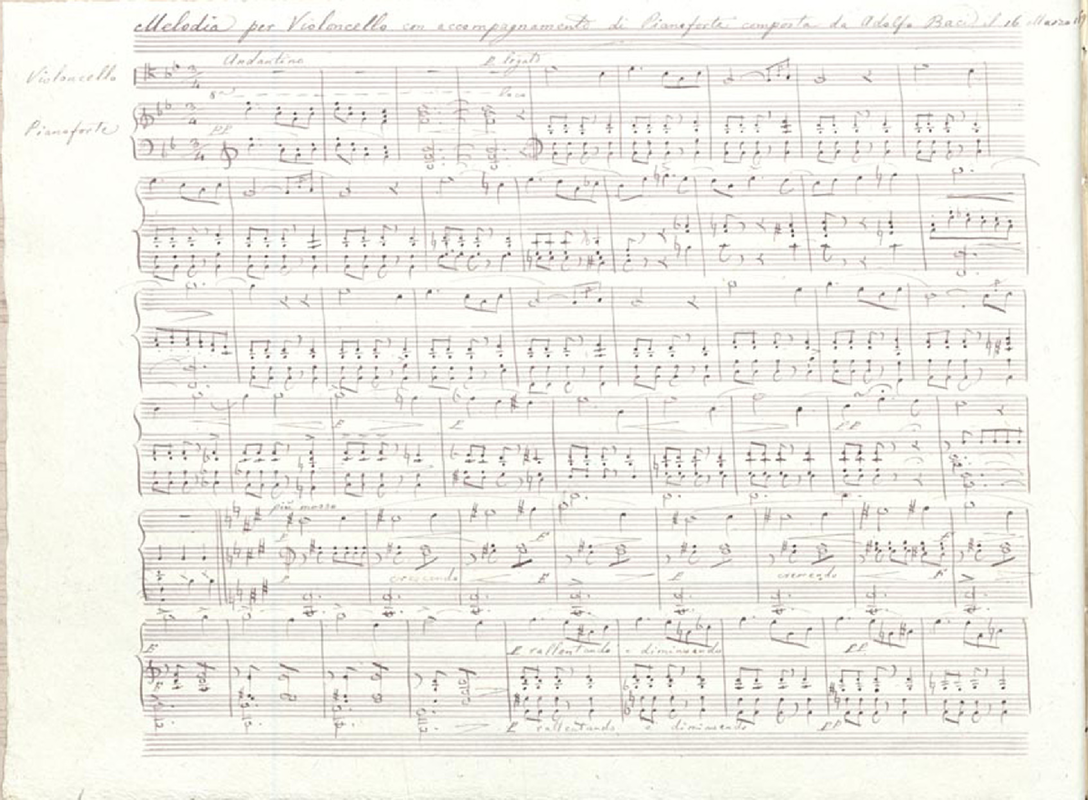 Melodia per Violoncello con accompagnamento di Pianoforte composta da Adolfo Baci il 16 Marzo
Andantino P. legato
Violoncello
8va loco
Pianoforte
PP
F
P PP
più mosso
F
P crescendo F P crescendo F
F P rallentando e diminuendo PP
P rallentando e diminuendo PP